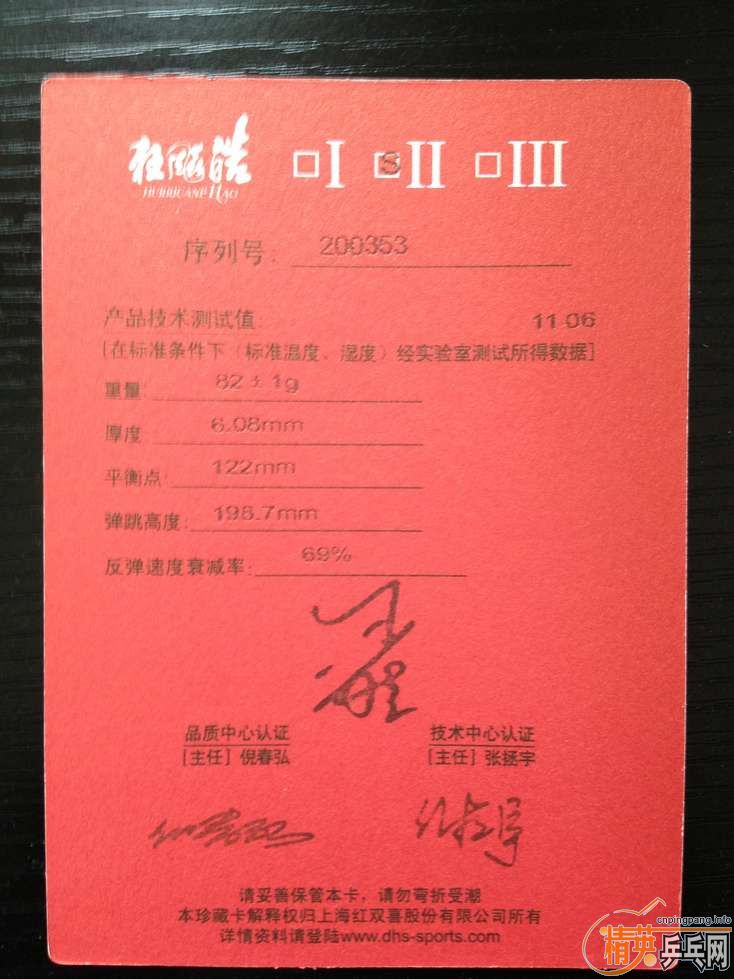 狂飚皓 □I SII □III
HURRICANE HAO
序列号: 200353
产品技术测试值: 11 06
[在标准条件下（标准温度、湿度）经实验室测试所得数据]
重量: 82±1g
厚度: 6.08mm
平衡点: 122mm
弹跳高度: 198.7mm
反弹速度衰减率: 69%
品质中心认证 技术中心认证
[主任] 倪春弘 [主任] 张拯宇
请妥善保管本卡，请勿弯折受潮
本珍藏卡解释权归上海红双喜股份有限公司所有
详情资料请登陆www.dhs-sports.com
cnpingpang.info
精英乒乓网